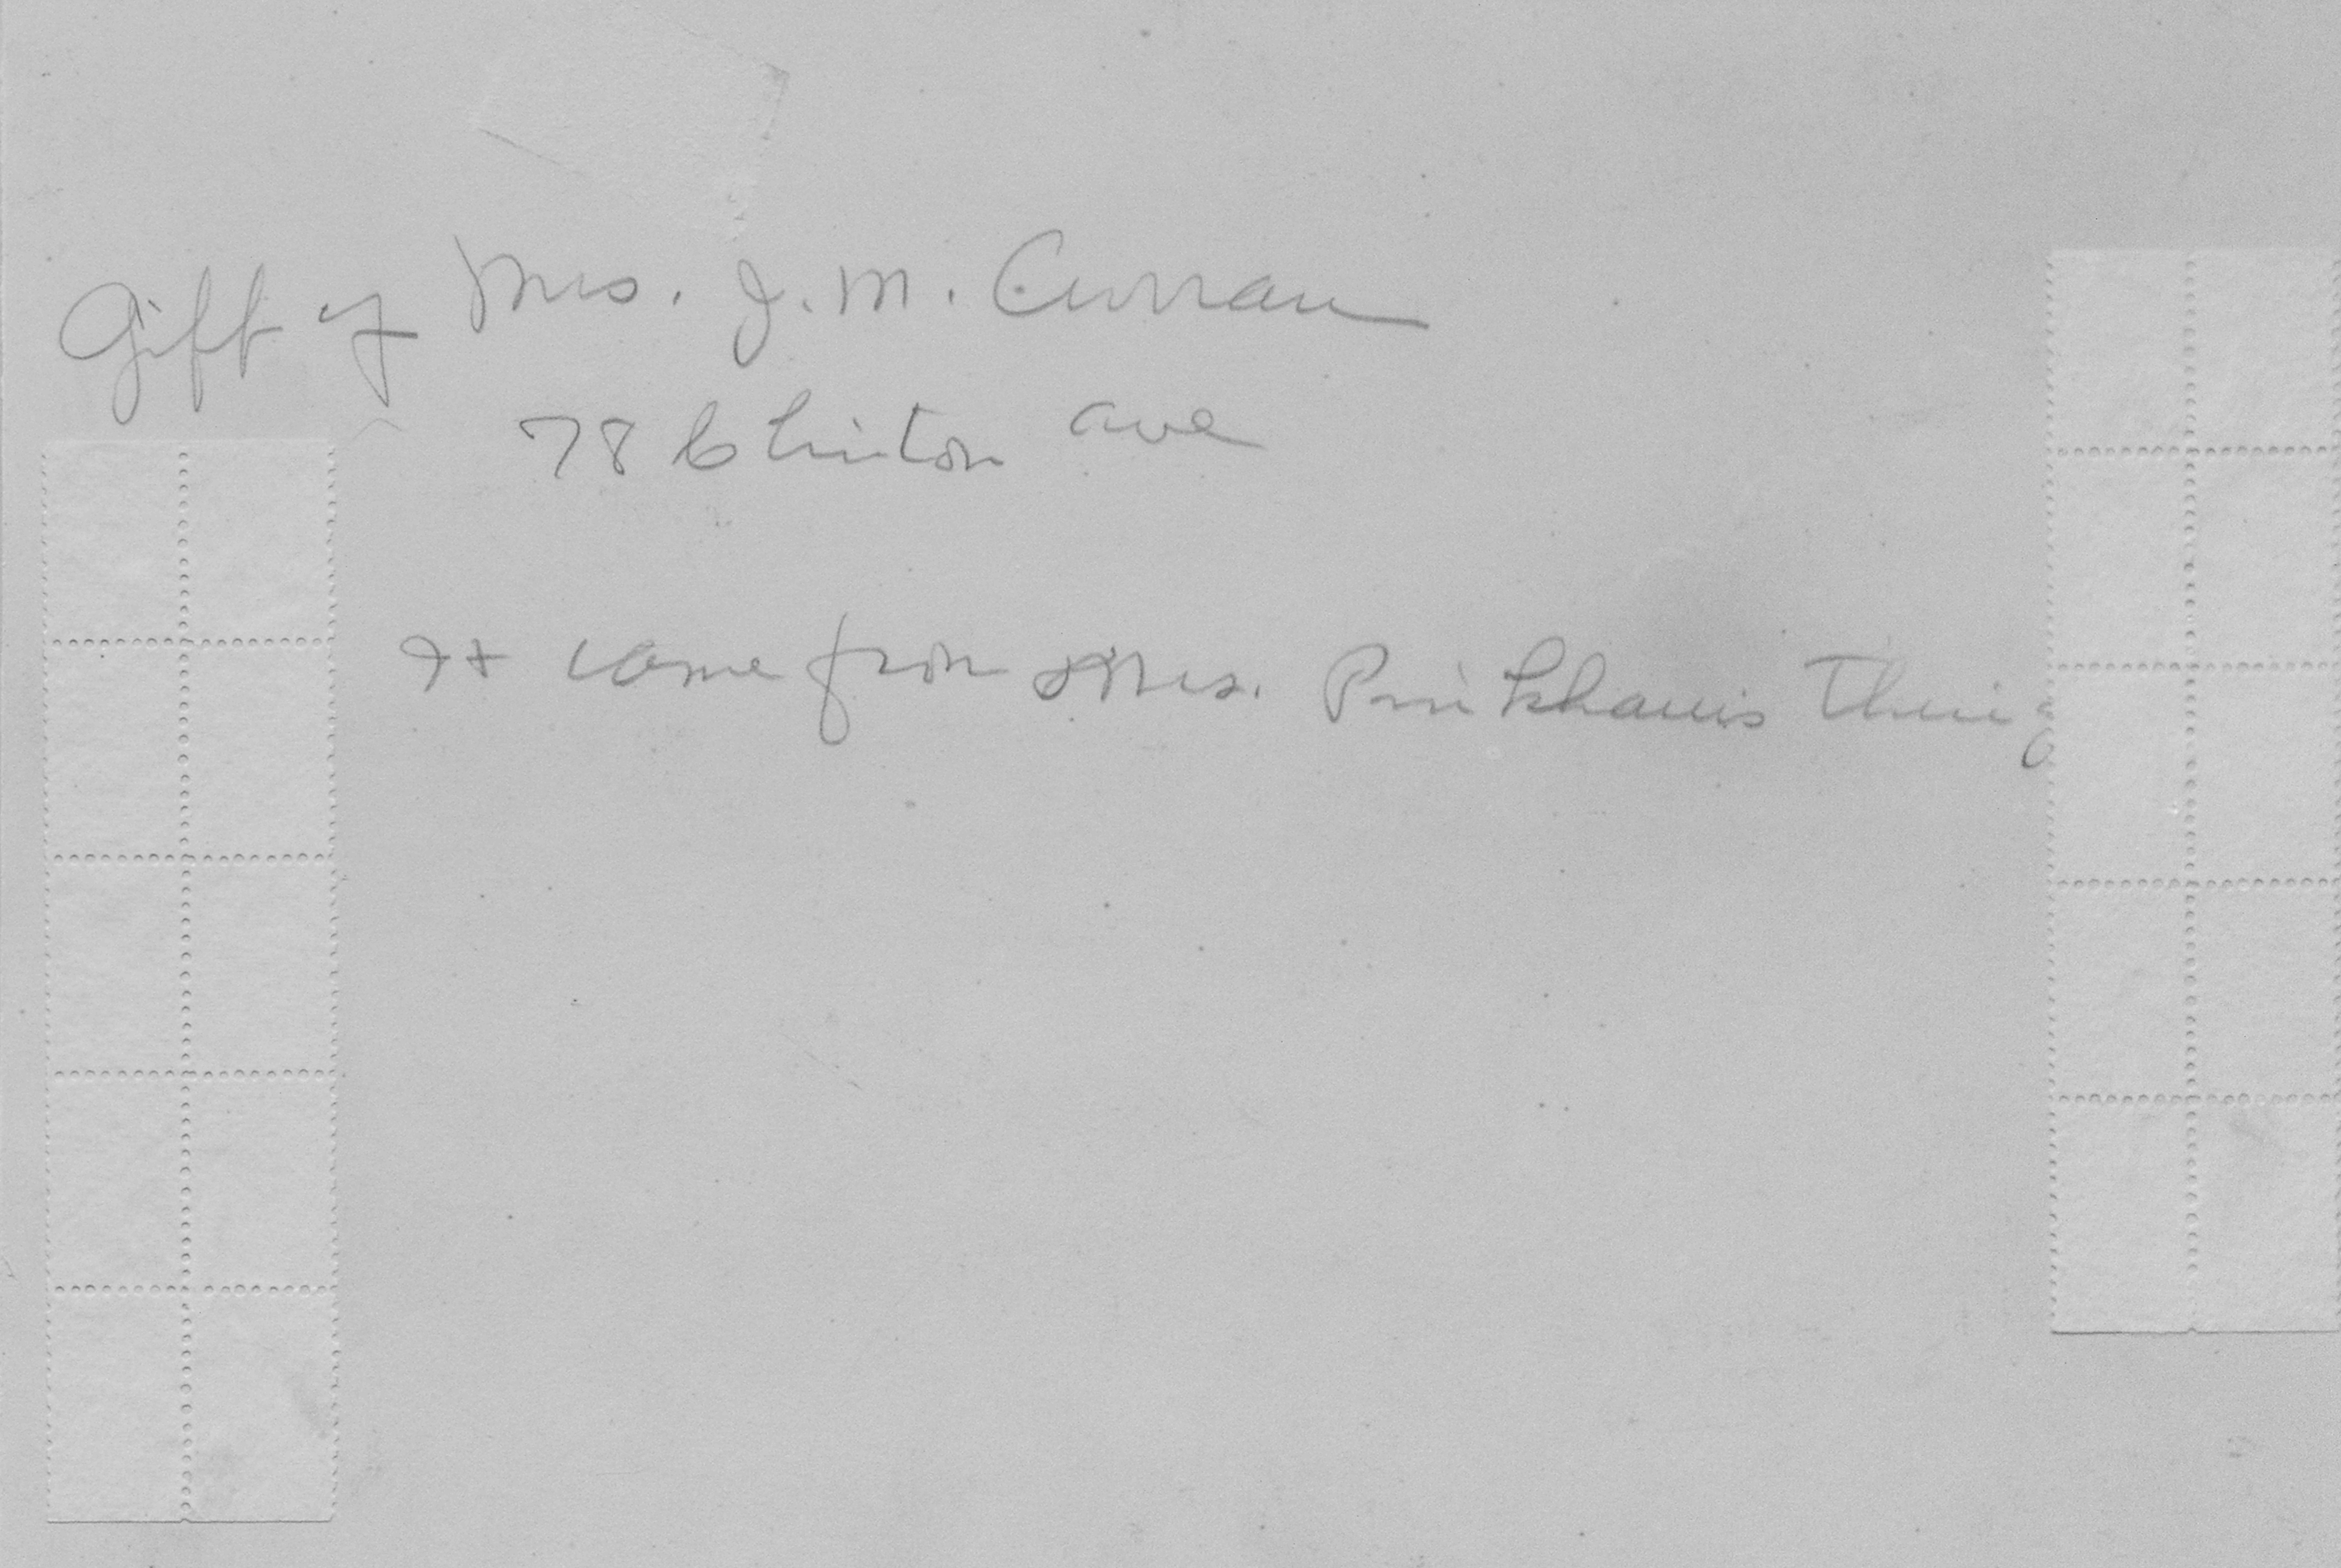 Gift of Mrs. J. M. Curran
78 Clinton ave
It came from Mrs. Pinkham's Thing